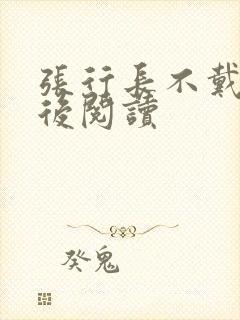 張行長不戴
後閱讀
癸鬼